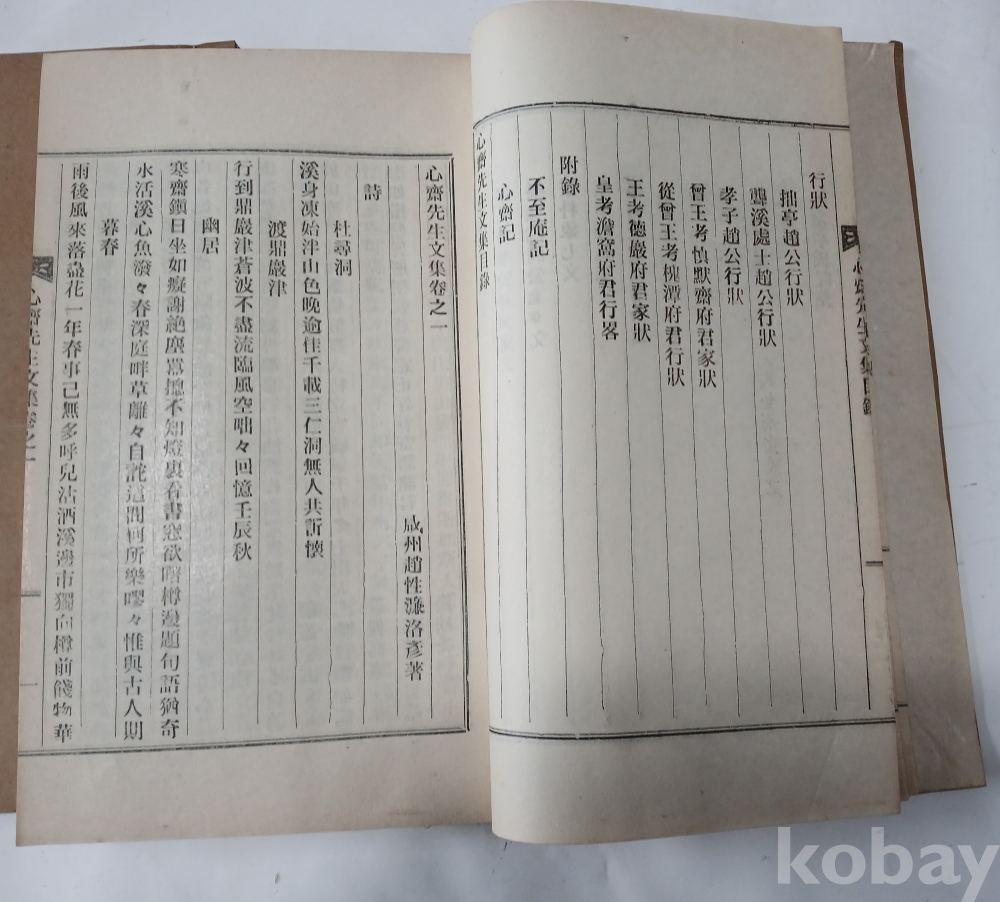 行狀
拙亭趙公行狀
龔溪處士趙公行狀
孝子趙公行狀
曾王考愼默齋府君家狀
從曾王考槐潭府君行狀
王考德巖府君家狀
皇考澹窩府君行畧
附錄
不至庵記
心齋記
心齋先生文集目錄
心齋先生文集目錄
心齋先生文集卷之一
咸州趙性濂洛彥著
詩
杜尋洞
溪身凍始泮山色晚逾佳千載三仁洞無人共訴懷
渡鼎巖津
行到鼎巖津蒼波不盡流臨風空咄々回憶壬辰秋
幽居
寒齋鎭日坐如癡謝絶塵囂摠不知燈裏看書窓欲曙樽邊題句語猶奇
水活溪心魚潑々春深庭畔草離々自詑這間何所樂嘐々惟與古人期
暮春
雨後風來落盡花一年春事已無多呼兒沽酒溪邊市獨向樽前餞物華
心齋先生文集卷之一
一
kobay